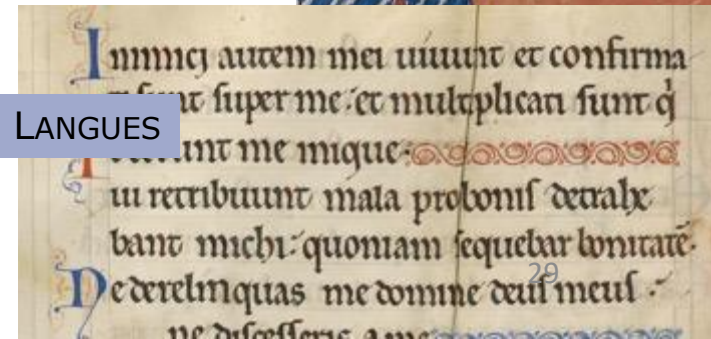 Inimici autem mei uiuunt et confirma
super me: et multiplicati sunt q
LANGUES
me inique:
ui retribuunt mala probonis detrahe
bant michi: quoniam sequebar bonitatē.
29
Ne derelinquas me domine deus meus :
ne discesseris a me: